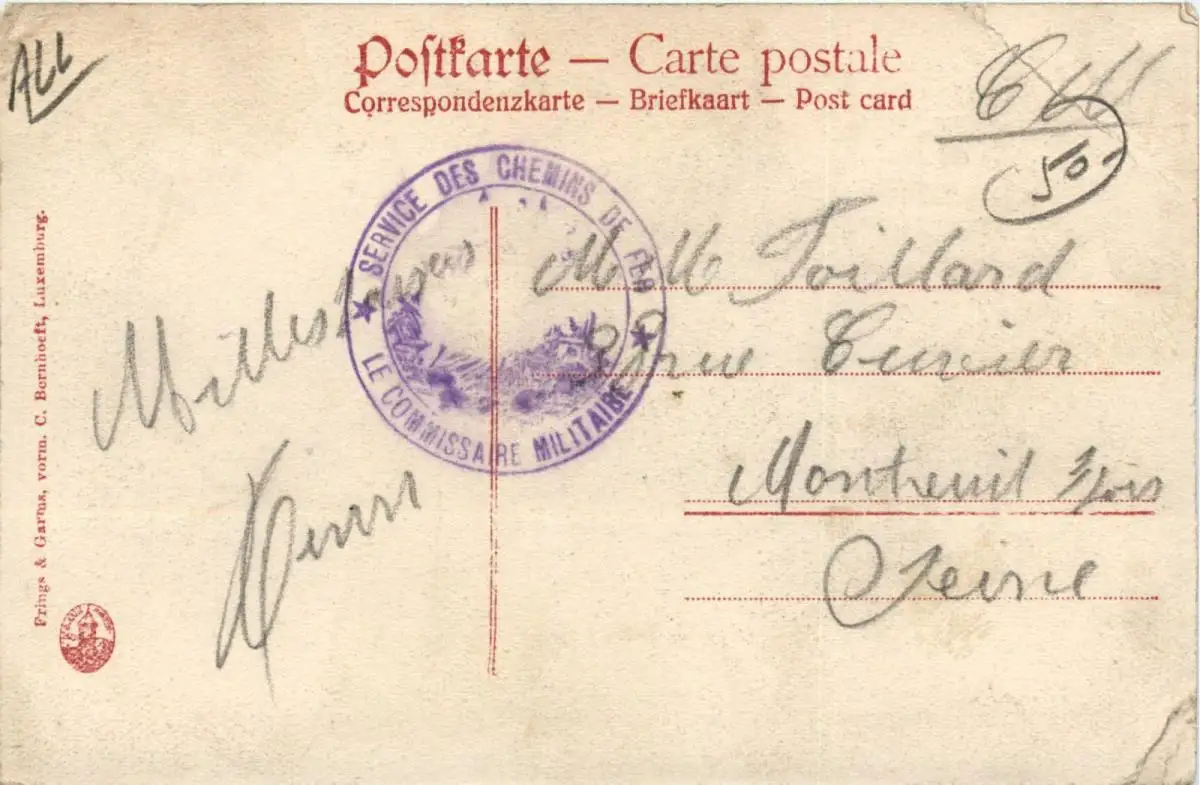 ALL
Postkarte — Carte postale
Correspondenzkarte — Briefkaart — Post card
50.-
SERVICE DES CHEMINS DE FER
LE COMMISSAIRE MILITAIRE
Mille
M Mlle Toillard
rue Cuvier
Montreuil s/bois
Seine
Prings & Garms, vorm. C. Bernhoeft, Luxemburg.